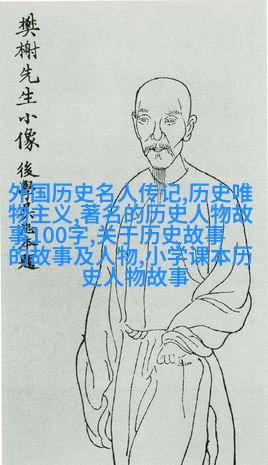 樊榭先生小像
後學
題
外国历史名人传记,历史唯
物主义,著名的历史人物故
事100字,关于历史故事
的故事及人物,小学课本历
史人物故事